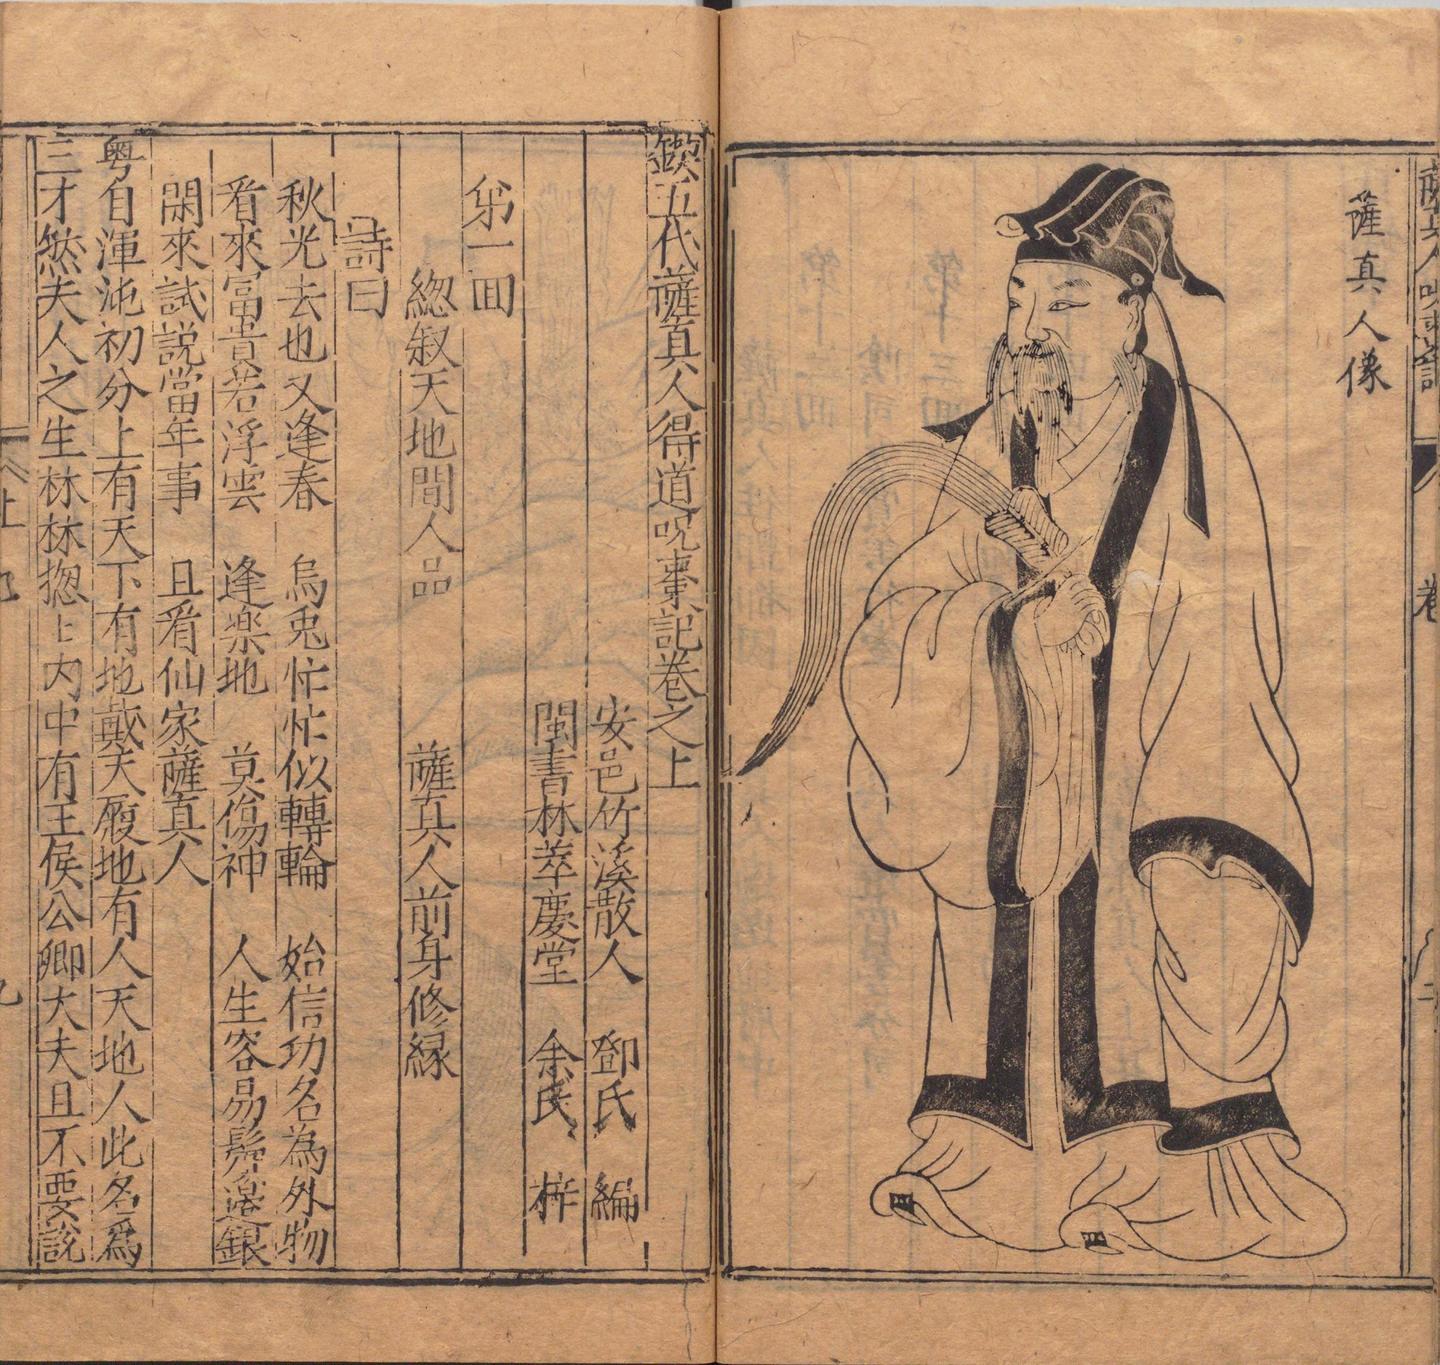 薩真人像
鍥五代薩真人得道呪棗記卷之上
安邑竹溪散人　鄧氏　編
閩書林萃慶堂　余氏　梓
第一回
總叙天地間人品　薩真人前身修緣
詩曰
秋光去也又逢春　烏兎忙忙似轉輪　始信功名為外物
看來冨貴若浮雲　逢楽地　莫傷神　人生容易鬂邊銀
閑來試説當年事　且看仙家薩真人
粤自渾沌初分上有天下有地戴天履地有人天地人此名爲
三才然夫人之生林林摠上内中有王侯公卿大夫且不要説